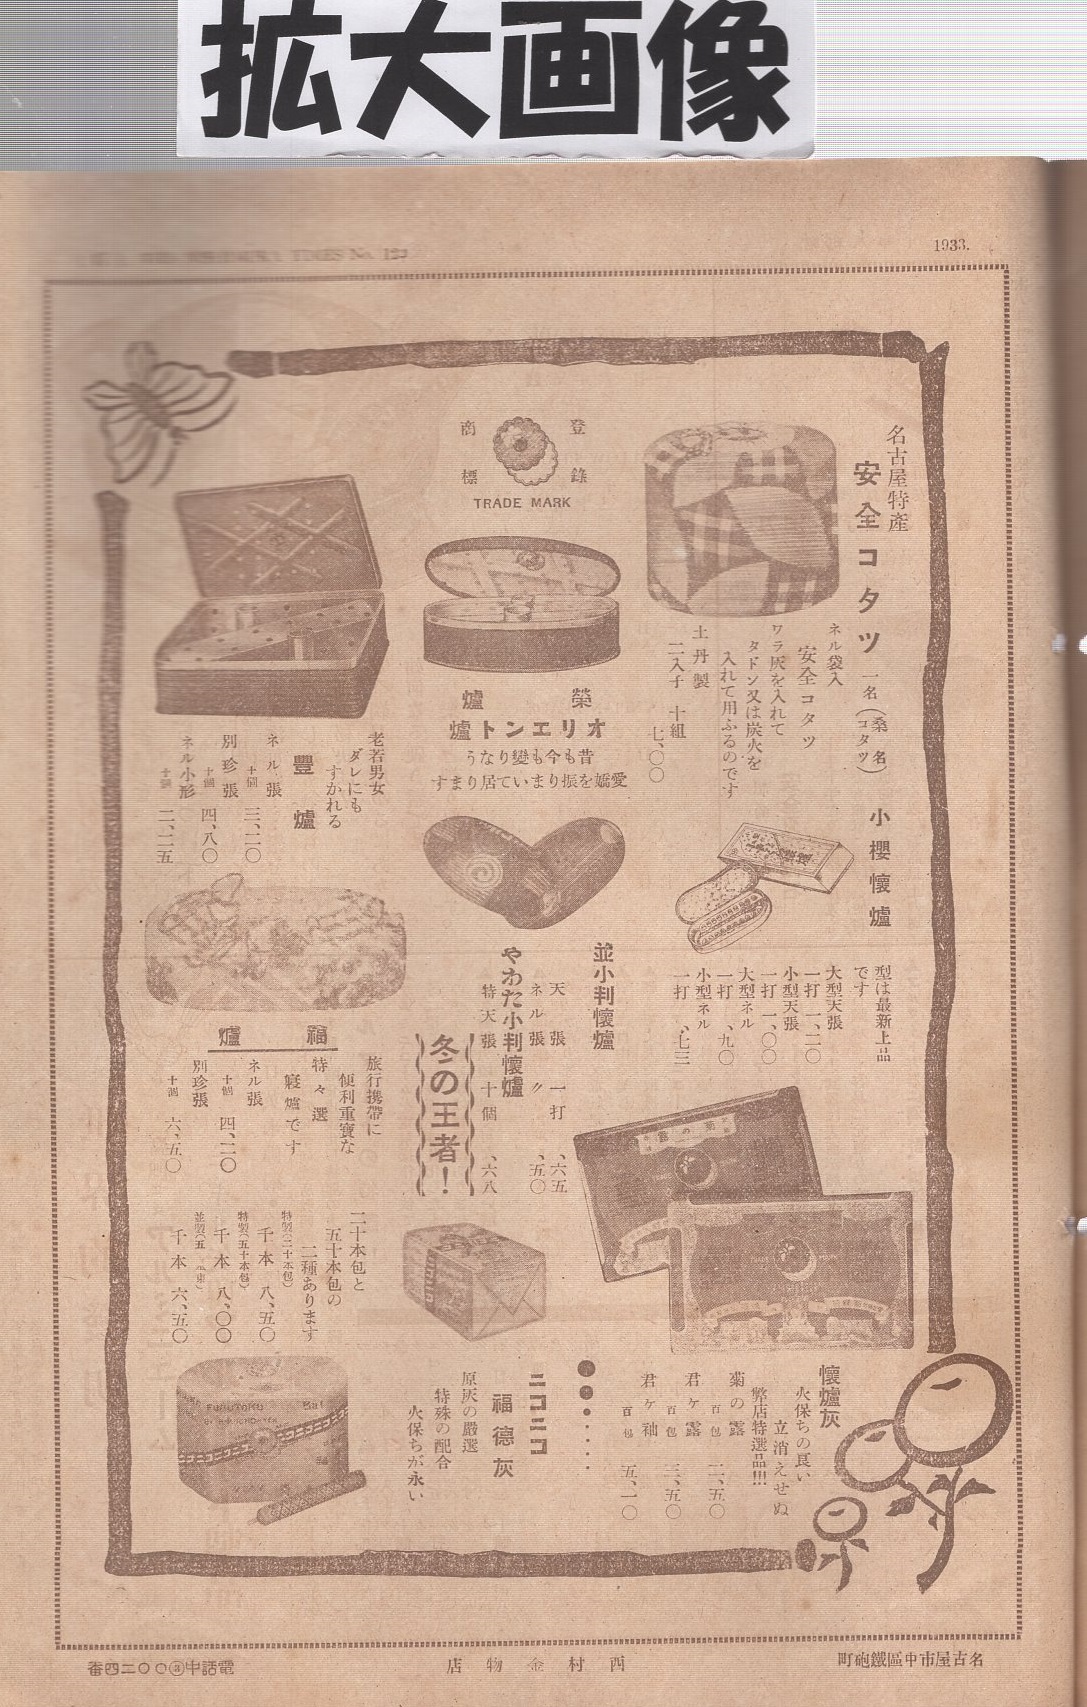 拡大画像
1933.
名古屋特産
安全コタツ
一名(桑名コタツ)
ネル袋入
安全コタツ
ワラ灰を入れて
タドン又は炭火を
入れて用ふるのです
土丹製
二入子 十組
七、〇〇
登録
商標
TRADE MARK
榮爐
オリエント爐
昔も今も變りなう
愛嬌を振りまいて居りますり
老若男女
ダレにも
すかれる
豐爐
ネル張
十個 三、二〇
別珍張
十個 四、八〇
ネル小形
十個 二、二五
小櫻懷爐
型は最新上品
です
大型天張
一打 一、二〇
小型天張
一打 一、〇〇
大型ネル
一打 、九〇
小型ネル
一打 、七三
並小判懷爐
天張 一打 、六五
ネル張 〃 、五〇
やわた小判懷爐
特天張 十個 、六八
冬の王者!
福爐
旅行携帶に
便利重寶な
特々選
寢爐です
ネル張
十個 四、二〇
別珍張
十個 六、五〇
菊の露
懷爐灰
火保ちの良い
立消えせぬ
弊店特選品!!!
菊の露
百包 二、五〇
君ケ露
百包 三、五〇
君ケ袖
百包 五、一〇
ニコニコ
福德灰
原灰の嚴選
特殊の配合
火保ちが永い
二十本包と
五十本包の
二種あります
特製(二十本包)
千本 八、五〇
特製(五十本包)
千本 八、〇〇
千本 六、五〇
FUKUTOKU
名古屋市中區鐵砲町
西村金物店
電話中③〇〇二四番